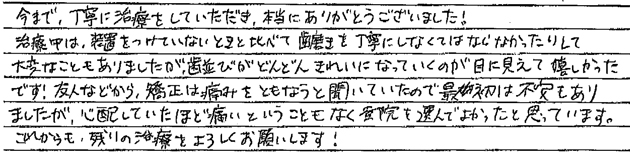 今まで、丁寧に治療をしていただき、本当にありがとうございました!
治療中は、装置をつけていないときと比べて歯磨きを丁寧にしなくてはならなかったりして
大変なこともありましたが、歯並びがどんどんきれいになっていくのが目に見えて嬉しかった
です!友人などから、矯正は痛みをともなうと聞いていたので最初は不安もあり
ましたが、心配していたほど痛いということもなく貴院を選んでよかったと思っています。
これからも、残りの治療をよろしくお願いします!